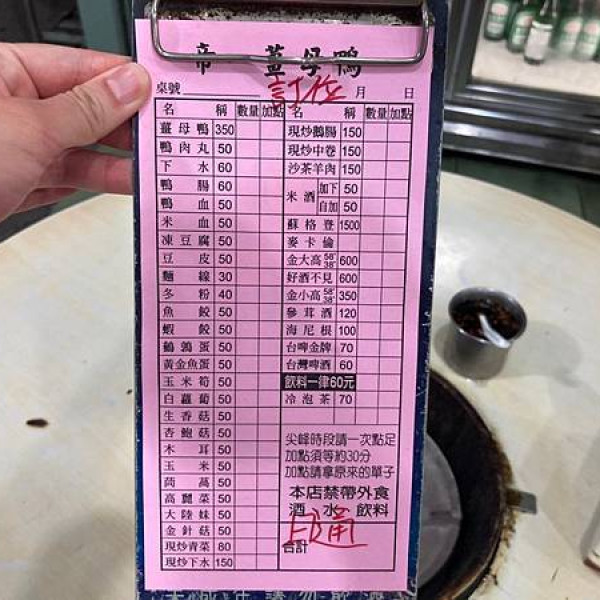 帝 薑母鴨
訂位
桌號 月 日
名稱 數量 加點 名稱 數量 加點
薑母鴨 350 現炒鵝腸 150
鴨肉丸 50 現炒中卷 150
下水 60 沙茶羊肉 150
鴨腸 60 米酒 加下 50
鴨血 50 自加 50
米血 50 蘇格登 1500
凍豆腐 50 麥卡倫
豆皮 50 金大高 58° 38° 600
麵線 30 好酒不見 600
冬粉 40 金小高 58° 38° 350
魚餃 50 參茸酒 120
蝦餃 50 海尼根 100
鵪鶉蛋 50 台啤金牌 70
黃金魚蛋 50 台灣啤酒 60
玉米筍 50 飲料一律60元
白蘿蔔 50 冷泡茶 70
生香菇 50
杏鮑菇 50 尖峰時段請一次點足
木耳 50 加點須等約30分
玉米 50 加點請拿原來的單子
茼萵 50
高麗菜 50 本店禁帶外食
大陸妹 50 酒水飲料
金針菇 50
現炒青菜 80 合計
現炒下水 150